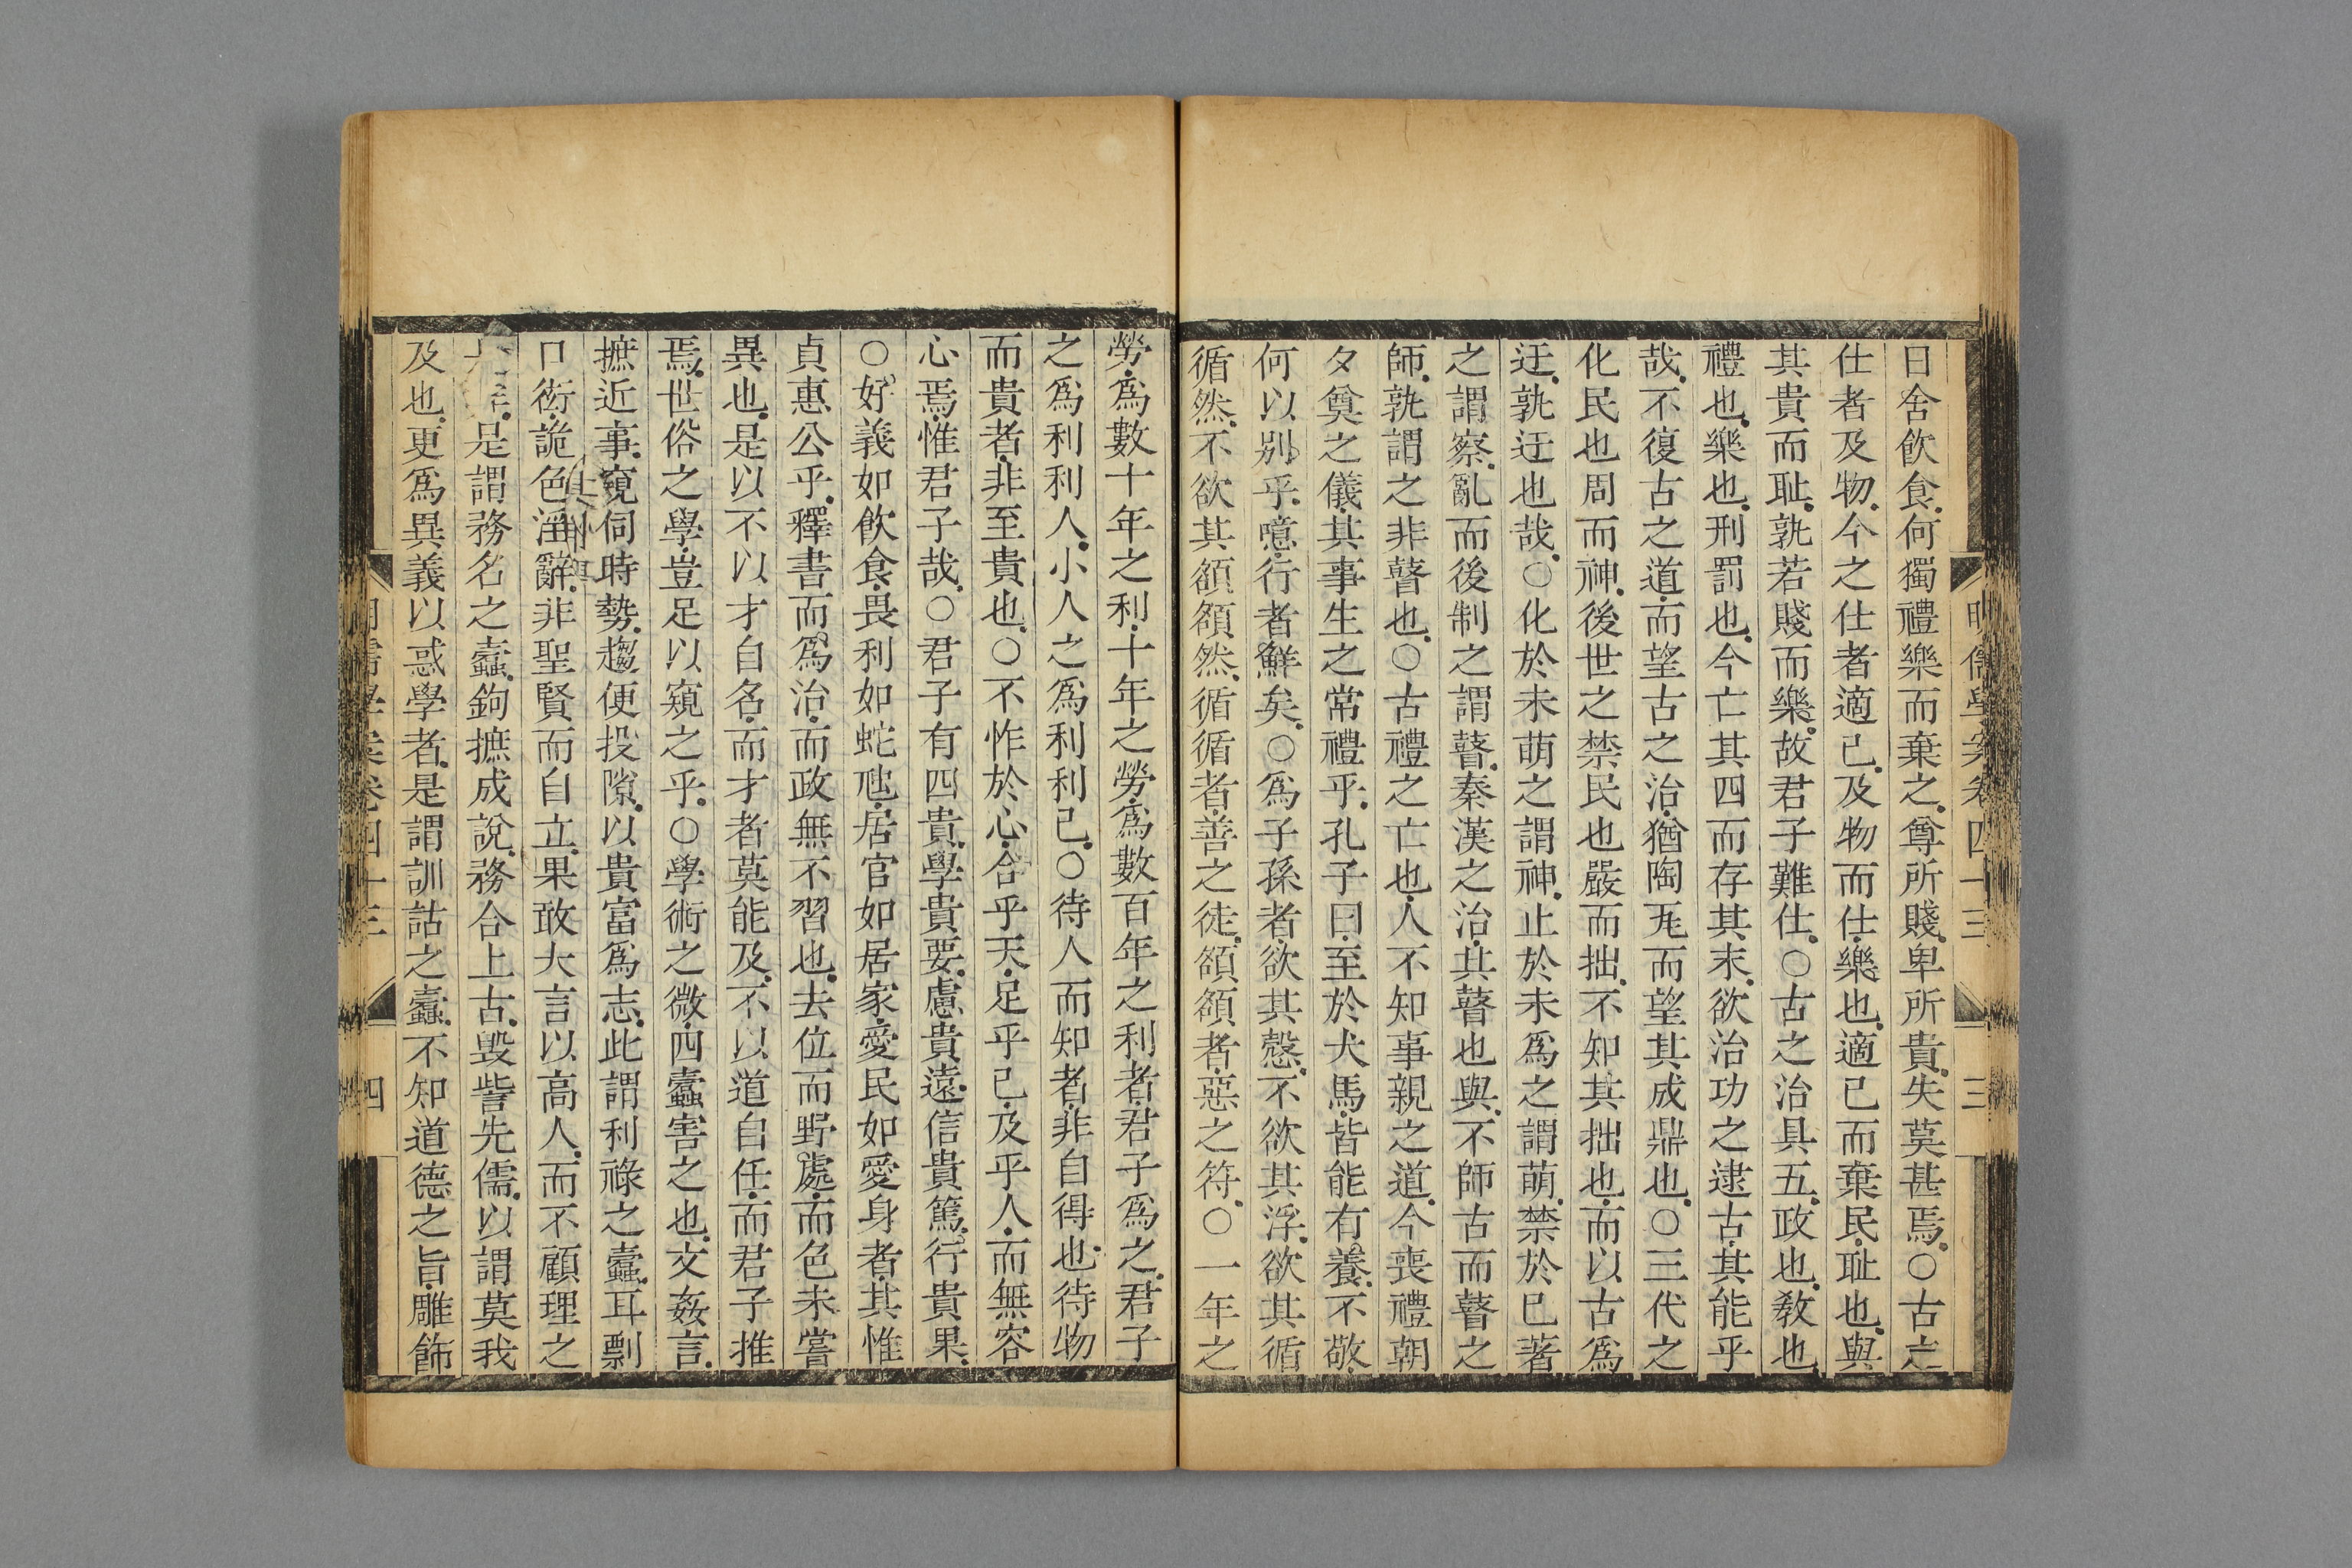 明儒學案卷四十三 三
日舍飲食何獨禮樂而棄之尊所賤卑所貴失莫甚焉○古之
仕者及物今之仕者適己及物而仕樂也適已而棄民耻也與
其貴而耻孰若賤而樂故君子難仕○古之治具五政也敎也
禮也樂也刑罰也今亡其四而存其末欲治功之逮古其能乎
哉不復古之道而望古之治猶陶瓦而望其成鼎也○三代之
化民也周而神後世之禁民也嚴而拙不知其拙也而以古爲
迂孰迂也哉○化於未萌之謂神止於未爲之謂萌禁於已著
之謂察亂而後制之謂瞽秦漢之治其瞽也與不師古而瞽之
師孰謂之非瞽也○古禮之亡也人不知事親之道今喪禮朝
夕奠之儀其事生之常禮乎孔子曰至於犬馬皆能有養不敬
何以别乎噫行者鮮矣○爲子孫者欲其慤不欲其浮欲其循
循然不欲其額額然循循者善之徒額額者惡之符○一年之
勞爲數十年之利十年之勞爲數百年之利者君子爲之君子
之爲利利人小人之爲利利己○待人而知者非自得也待物
而貴者非至貴也○不怍於心合乎天足乎己及乎人而無容
心焉惟君子哉○君子有四貴學貴要慮貴遠信貴篤行貴果
○好義如飲食畏利如蛇虺居官如居家愛民如愛身者其惟
貞惠公乎釋書而爲治而政無不習也去位而野處而色未嘗
異也是以不以才自名而才者莫能及不以道自任而君子推
焉世俗之學豈足以窺之乎○學術之微四蠹害之也文姦言
摭近事窺伺時勢趨便投隙以貴富爲志此謂利祿之蠹耳剽
口衒詭色淫辭非聖賢而自立果敢大言以高人而不顧理之
是謂務名之蠹鉤摭成說務合上古毁訾先儒以謂莫我
及也更爲異義以惑學者是謂訓詁之蠹不知道德之旨雕飾
明儒學案卷四十三 四